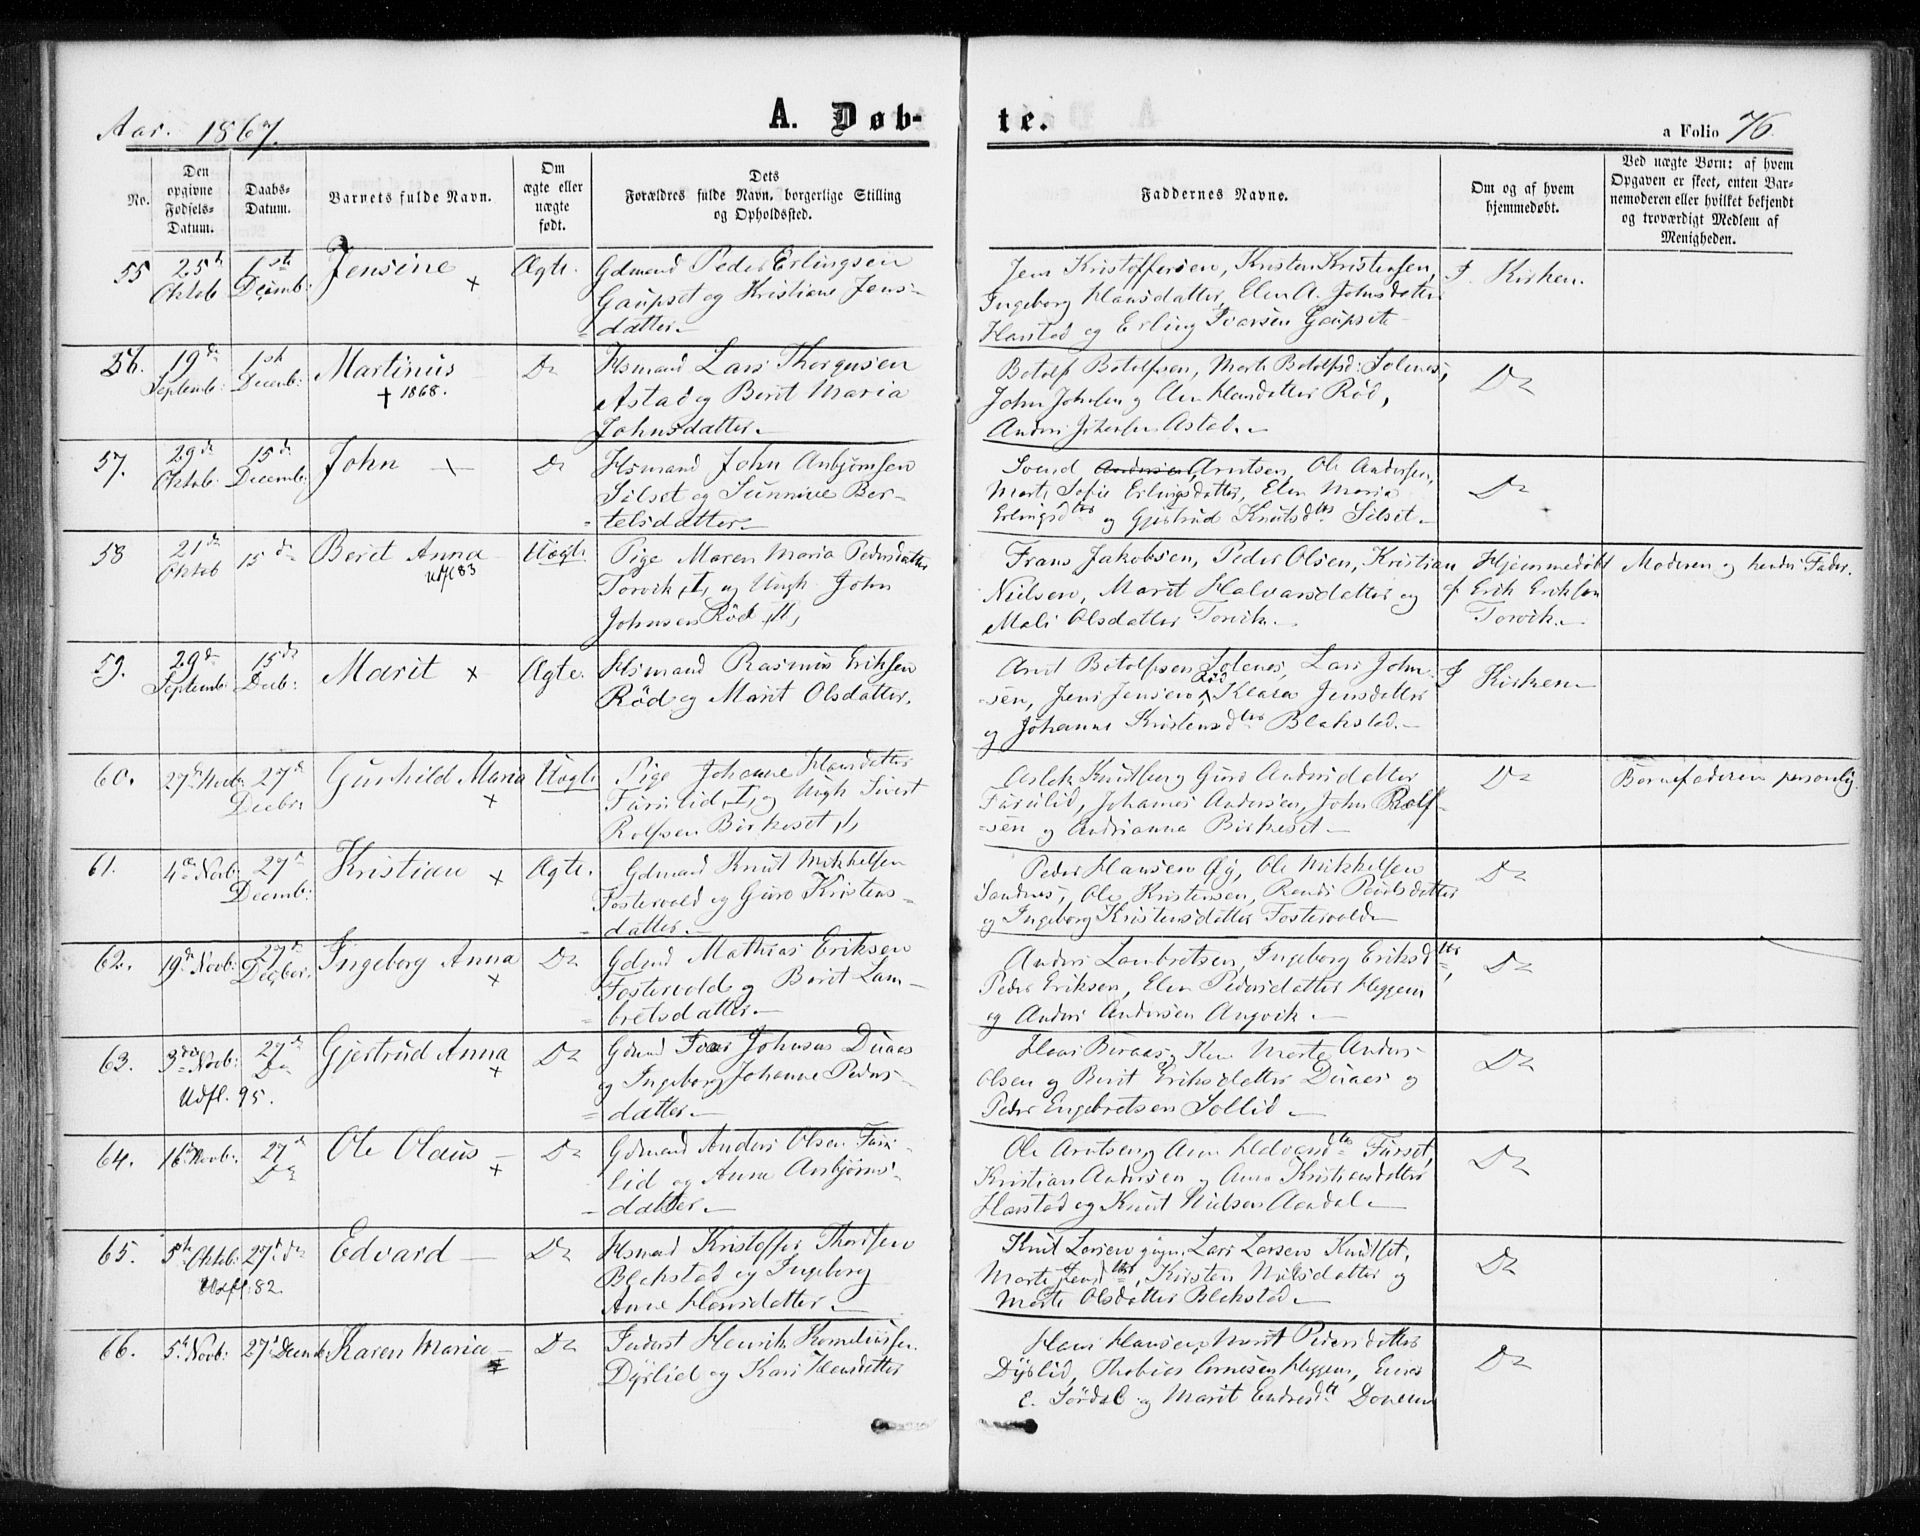 Aar. 1867.
A. Døb-
te.
a Folio 76
No.
Den
opgivne
Fødsels-
Datum.
Daabs-
Datum.
Barnets fulde Navn.
Om
ægte eller
uægte
født.
Dets
Forældres fulde Navn, borgerlige Stilling
og Opholdssted.
Faddernes Navne.
Om og af hvem
hjemmedøbt.
Ved uægte Børn: af hvem
Opgaven er skeet, enten Bar-
nemoderen eller hvilket bekjendt
og troværdigt Medlem af
Menigheden.
55
25de
Oktob
1ste
Decemb:
Jensine
×
Ægte.
Gdmand Peder Erlingsen
Gaupset og Kristiane Jens-
datter.
Jens Kristoffersen, Kristen Kristensen,
Ingeborg Hansdatter, Elen A. Johnsdatter
Harstad og Erling Iversen Gaupset
I Kirken.
56.
19de
Septemb:
1ste
Decemb:
Martinus
† 1868.
Do
Hsmand Lars Thorgusen
Astad og Berit Maria
Johnsdatter.
Botolf Botolfsen, Marte Botolfsd: Solenes,
John Johnsen og Ane Hansdatter Rød,
Anders Astad.
Do
57.
29de
Oktob:
15de
Decemb:
John
Do
Hsmand John Anbjørnsen
Silset og Sunnive Ber-
telsdatter.
Svend Andersen Arntsen, Ole Andersen,
Marte Sofie Erlingsdatter, Elen Maria
Erlingsdtr og Gjertrud Knutsdtr Silset.
Do
58
21de
Oktob
15de
Beret Anna
Udfl 83
Uægte
Pige Maren Maria Pedersdatter
Torvik, I, og Ungk. John
Johnsen Rød, I,
Frans Jakobsen, Peder Olsen, Kristian
Nielsen, Marit Halvarsdatter og
Mali Olsdatter Torvik.
Hjemmedøbt
af Erik Eriksen
Torvik.
Moderen og hendes Fader.
59.
29de
Septemb:
15de
Decb:
Marit
×
Ægte.
Hsmand Rasmus Eriksen
Rød og Marit Olsdatter.
Arnt Botolfsen Solenes, Lars John-
sen, Jens Jensen Rød Klara Jensdatter
og Johanne Kristensdtr Blakstad.
I Kirken
60.
27de
27de
Decbr.
Gunhild Maria
×
Uægte
Pige Johanne Hansdatter
Farulid, I, og Ungk Sivert
Rolfsen Birkeset, I,
Aslak Knutsen og Guro Andersdatter
Farulid, Johannes Andersen, John Rolf-
sen og Andrianna Birkeset.
Do
Barnefaderen personlig
61.
4de Novb:
27de
Decemb:
Kristian
×
Ægte.
Gdmand Knut Mikkelsen
Fostervold og Guro Kristens-
datter.
Peder Hansen Øy, Ole Mikkelsen
Sandnes, Ole Kristensen, Randi Poulsdatter
og Ingeborg Kristensdatter Fostervold
Do
62.
19de Novb:
27de
Decbr.
Ingeborg Anna
×
Do
Gdmd Mathias Eriksen
Fostervold og Berit Lam-
bretsdatter.
Anders Lambretsen, Ingeborg Eriksdtr,
Peder Eriksen, Elen Pedersdatter Heggem
og Anders Andersen Angvik.
Do
63.
3die Novb:
Udfl. 95.
27de
Do
Gjertrud Anna
×
Do
Gdmd Iver Johnsen Duaas
og Ingeborg Johanne Peders-
datter.
Hans Beraas, Marte Anders-
Olsen og Berit Eriksdatter Duaas og
Peder Engebretsen Sollid.
Do
64.
16de Novb:
27de
Do
Ole Olaus
×
Do
Gdmand Anders Olsen Faru-
lid og Anne Anbjørns-
datter.
Ole Arntsen og Ane Halvarsdtr Furset,
Kristian Andersen og Anne Kristiansdatter
Harstad og Knut Nielsen Aandal.
Do
65.
5te Oktob:
Udfl: 82.
27de do
Edvard
Do
Hsmand Kristoffer Thorsen
Blakstad og Ingeborg
Anne Hansdatter.
Knut Larsen Lars Larsen Knutset,
Marte Jensdtr, Kirsten Nilsdatter og
Marte Olsdatter Blakstad.
Do
66.
5te Novb:
27de Decmb
Karen Maria
Do
Inderst Henrik Korneliussen
Dyrlid og Kari Hansdatter
Hans Hansen, Marit Pedersdatter
Dyrlid, Thobias Arnesen Heggem,
E. Sørdal og Marit Endresdtr
Do